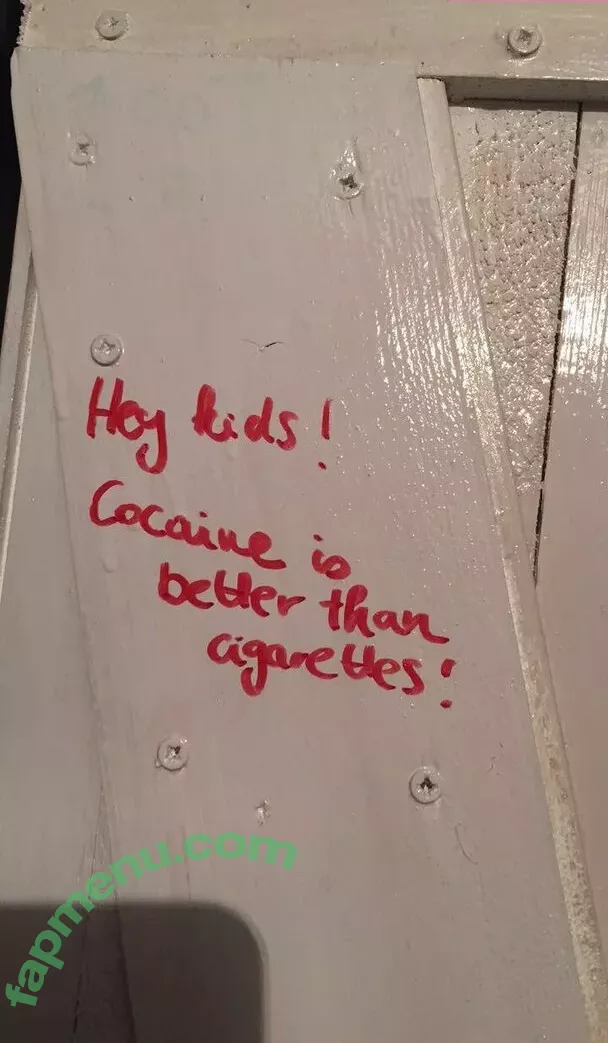 Hey kids!
Cocaine is
better than
cigarettes!
fapmenu.com